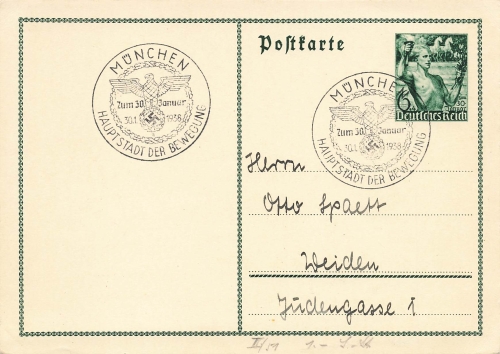 Postkarte
MÜNCHEN
Zum 30. Januar
30.1. 1938
HAUPTSTADT DER BEWEGUNG
MÜNCHEN
Zum 30. Januar
30.1. 1938
HAUPTSTADT DER BEWEGUNG
6
Deutsches Reich
Herrn
Otto Spaett
Weiden
Judengasse 1